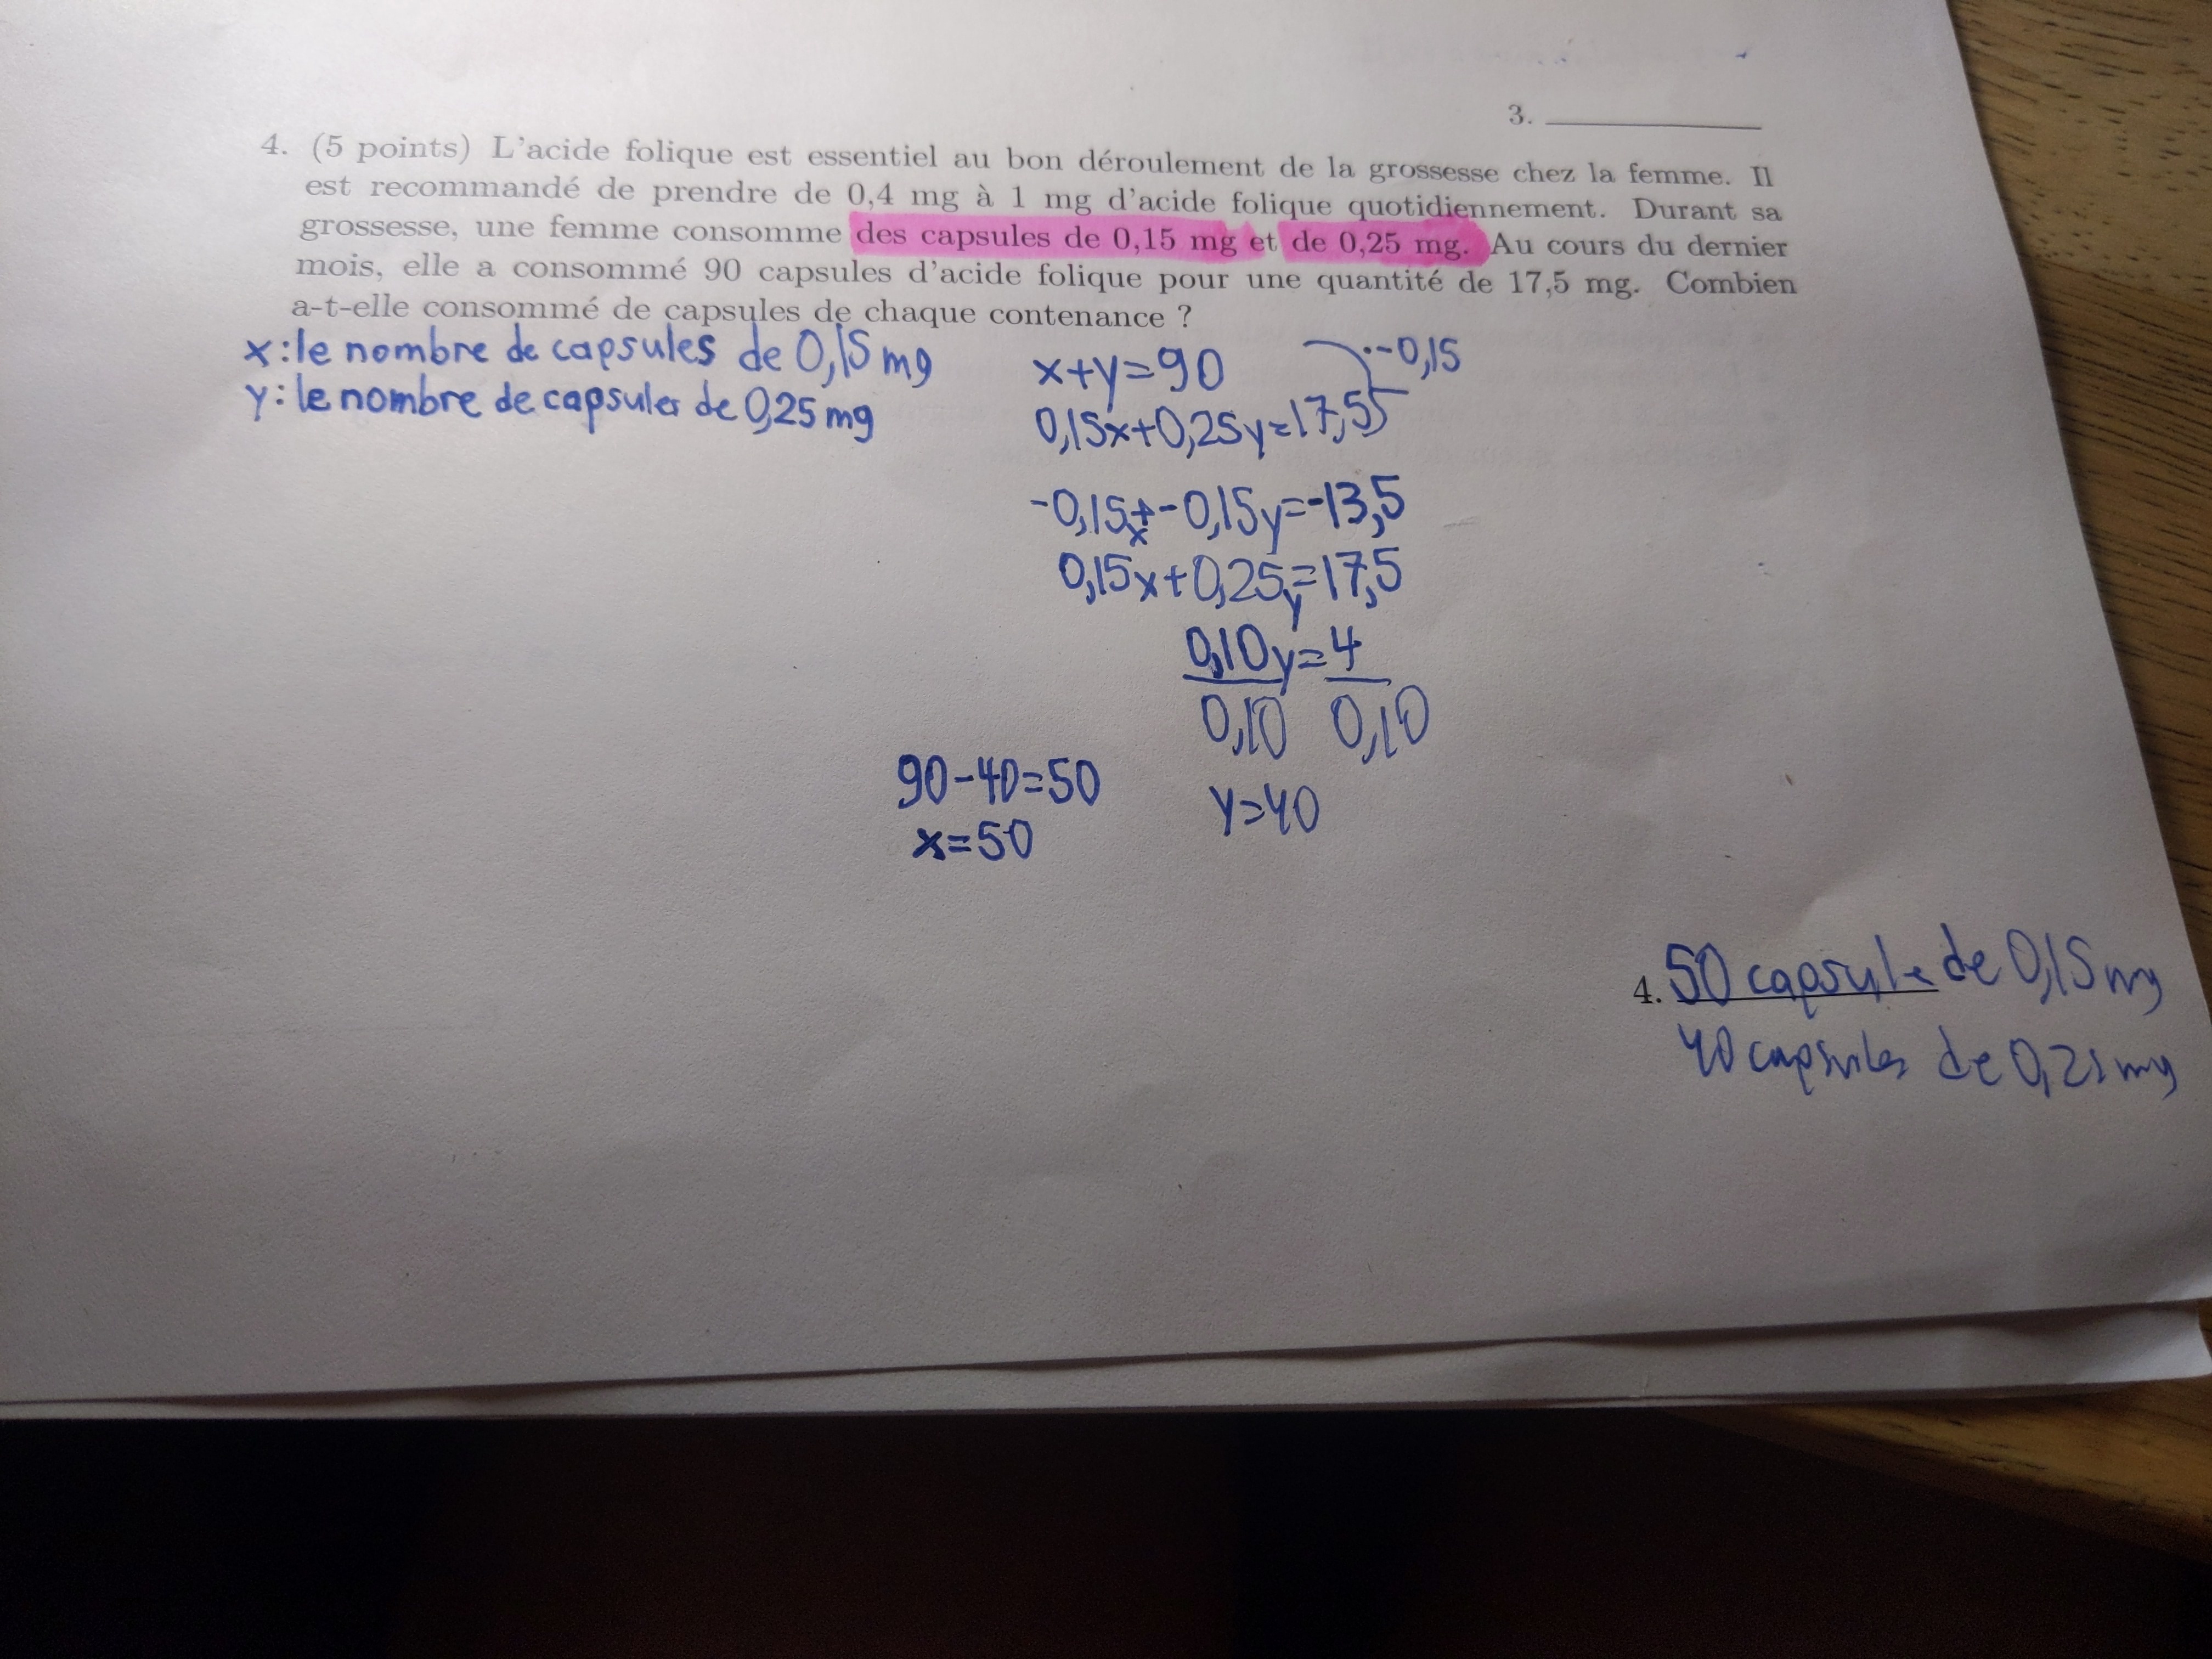 3.
4. (5 points) L'acide folique est essentiel au bon déroulement de la grossesse chez la femme. Il
est recommandé de prendre de 0,4 mg à 1 mg d'acide folique quotidiennement. Durant sa
grossesse, une femme consomme des capsules de 0,15 mg et de 0,25 mg. Au cours du dernier
mois, elle a consommé 90 capsules d'acide folique pour une quantité de 17,5 mg. Combien
a-t-elle consommé de capsules de chaque contenance ?
x: le nombre de capsules de 0,15 mg
y: le nombre de capsules de 0,25 mg
x+y=90 ·-0,15
0,15x+0,25y=17,5
-0,15x+-0,15y=-13,5
0,15x+0,25y=17,5
0,10y=4
0,10 0,10
90-40=50
y=40
x=50
4. 50 capsule de 0,15 mg
40 capsules de 0,25 mg